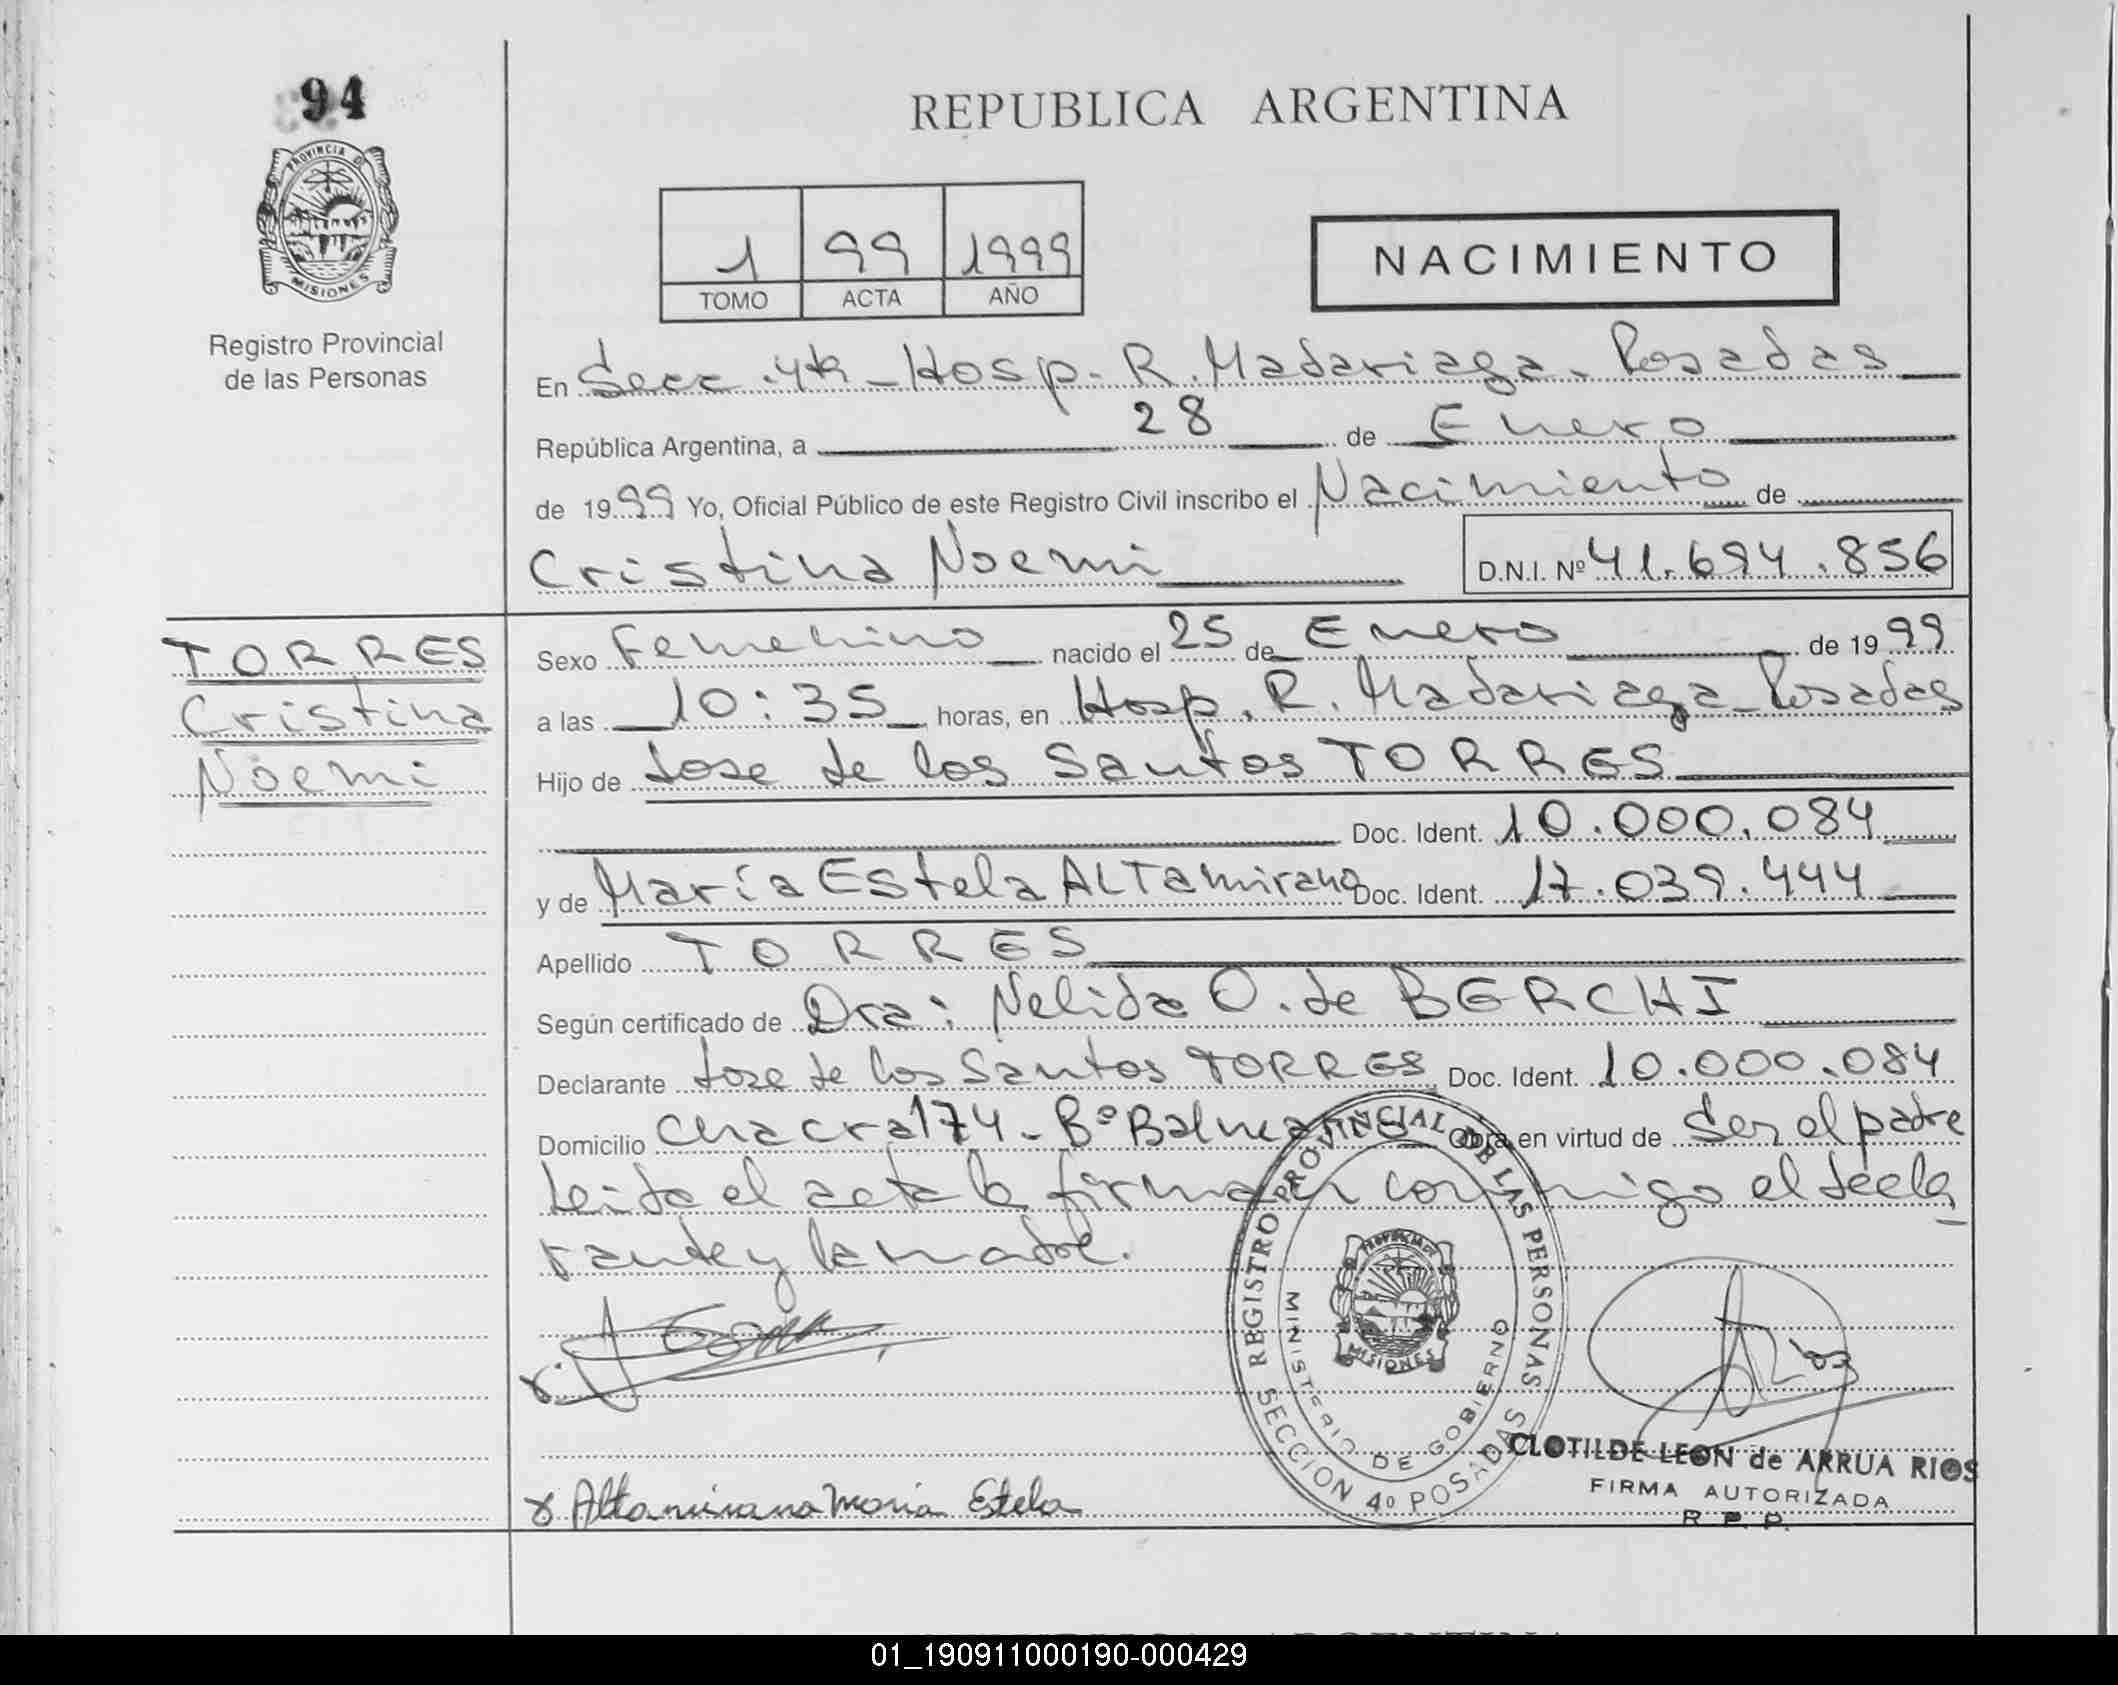 94
PROVINCIA DE
MISIONES
Registro Provincial
de las Personas
REPUBLICA ARGENTINA
1 99 1999
TOMO ACTA AÑO
NACIMIENTO
En Secc. 4ta - Hosp. R. Madariaga - Posadas
República Argentina, a 28 de Enero
de 1999 Yo, Oficial Público de este Registro Civil inscribo el Nacimiento de
Cristina Noemi D.N.I. Nº 41.694.856
TORRES
Cristina
Noemi
Sexo Femenino nacido el 25 de Enero de 1999
a las 10:35 horas, en Hosp. R. Madariaga - Posadas
Hijo de Jose de los Santos TORRES
Doc. Ident. 10.000.084
y de María Estela ALTamirano Doc. Ident. 17.039.444
Apellido TORRES
Según certificado de Dra: Nelida O. de BERCHI
Declarante Jose de los Santos TORRES Doc. Ident. 10.000.084
Domicilio Chacra 174 - Bº Obra en virtud de Ser el padre
Leida el acta la firman conmigo el decla
rante y la madre.
REGISTRO PROVINCIAL DE LAS PERSONAS
MINISTERIO DE GOBIERNO
PROVINCIA DE
MISIONES
SECCION 4º POSADAS
Rios
CLOTILDE LEON de ARRUA RIOS
FIRMA AUTORIZADA
R. P. P.
Altamirano Maria Estela
REPUBLICA ARGENTINA
01_190911000190-000429